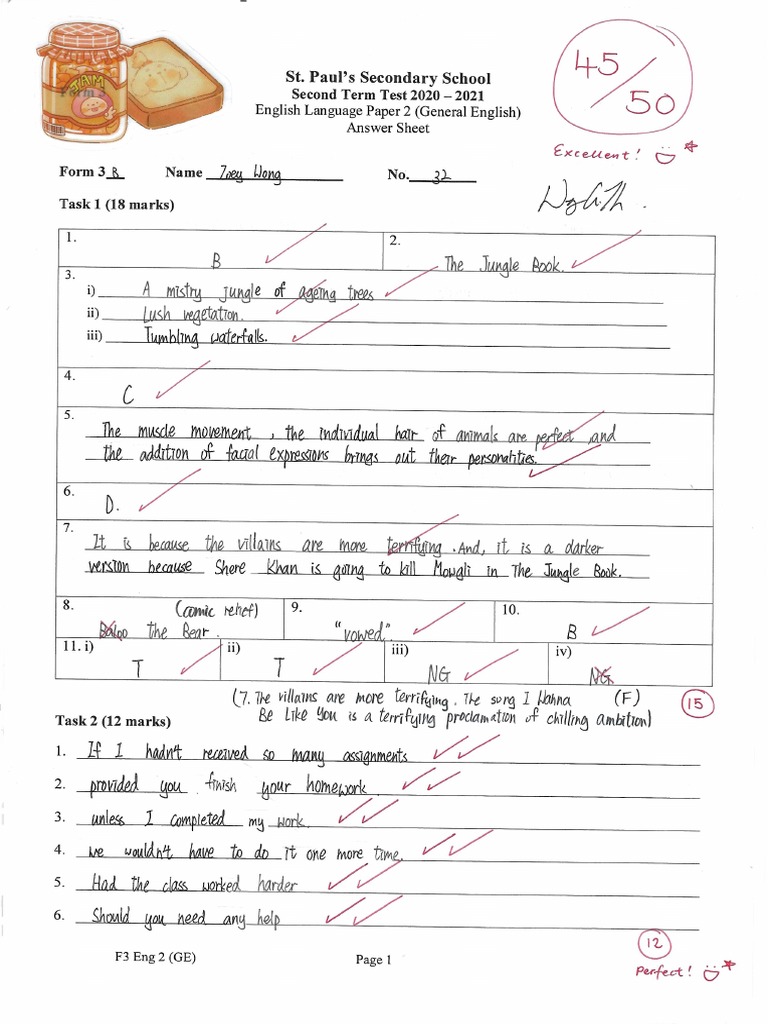 JAM
45/50
St. Paul's Secondary School
Second Term Test 2020 – 2021
English Language Paper 2 (General English)
Answer Sheet
Excellent!
Form 3 B Name Zoey Wong No. 32
Task 1 (18 marks)
1. B
2. The Jungle Book.
3.
i) A mistry jungle of ageing trees
ii) Lush vegetation.
iii) Tumbling waterfalls.
4. C
5. The muscle movement, the individual hair of animals are perfect, and
the addition of facial expressions brings out their personalities.
6. D.
7. It is because the villains are more terrifying. And, it is a darker
version because Shere Khan is going to kill Mowgli in The Jungle Book.
8. (comic relief)
Baloo the Bear.
9. "vowed"
10. B
11. i) T
ii) T
iii) NG
iv) NG
(7. The villains are more terrifying. The song I Wanna (F) 15
Be Like You is a terrifying proclamation of chilling ambition)
Task 2 (12 marks)
1. If I hadn't received so many assignments
2. provided you finish your homework.
3. unless I completed my work.
4. we wouldn't have to do it one more time.
5. Had the class worked harder
6. Should you need any help
12
F3 Eng 2 (GE) Page 1
Perfect!